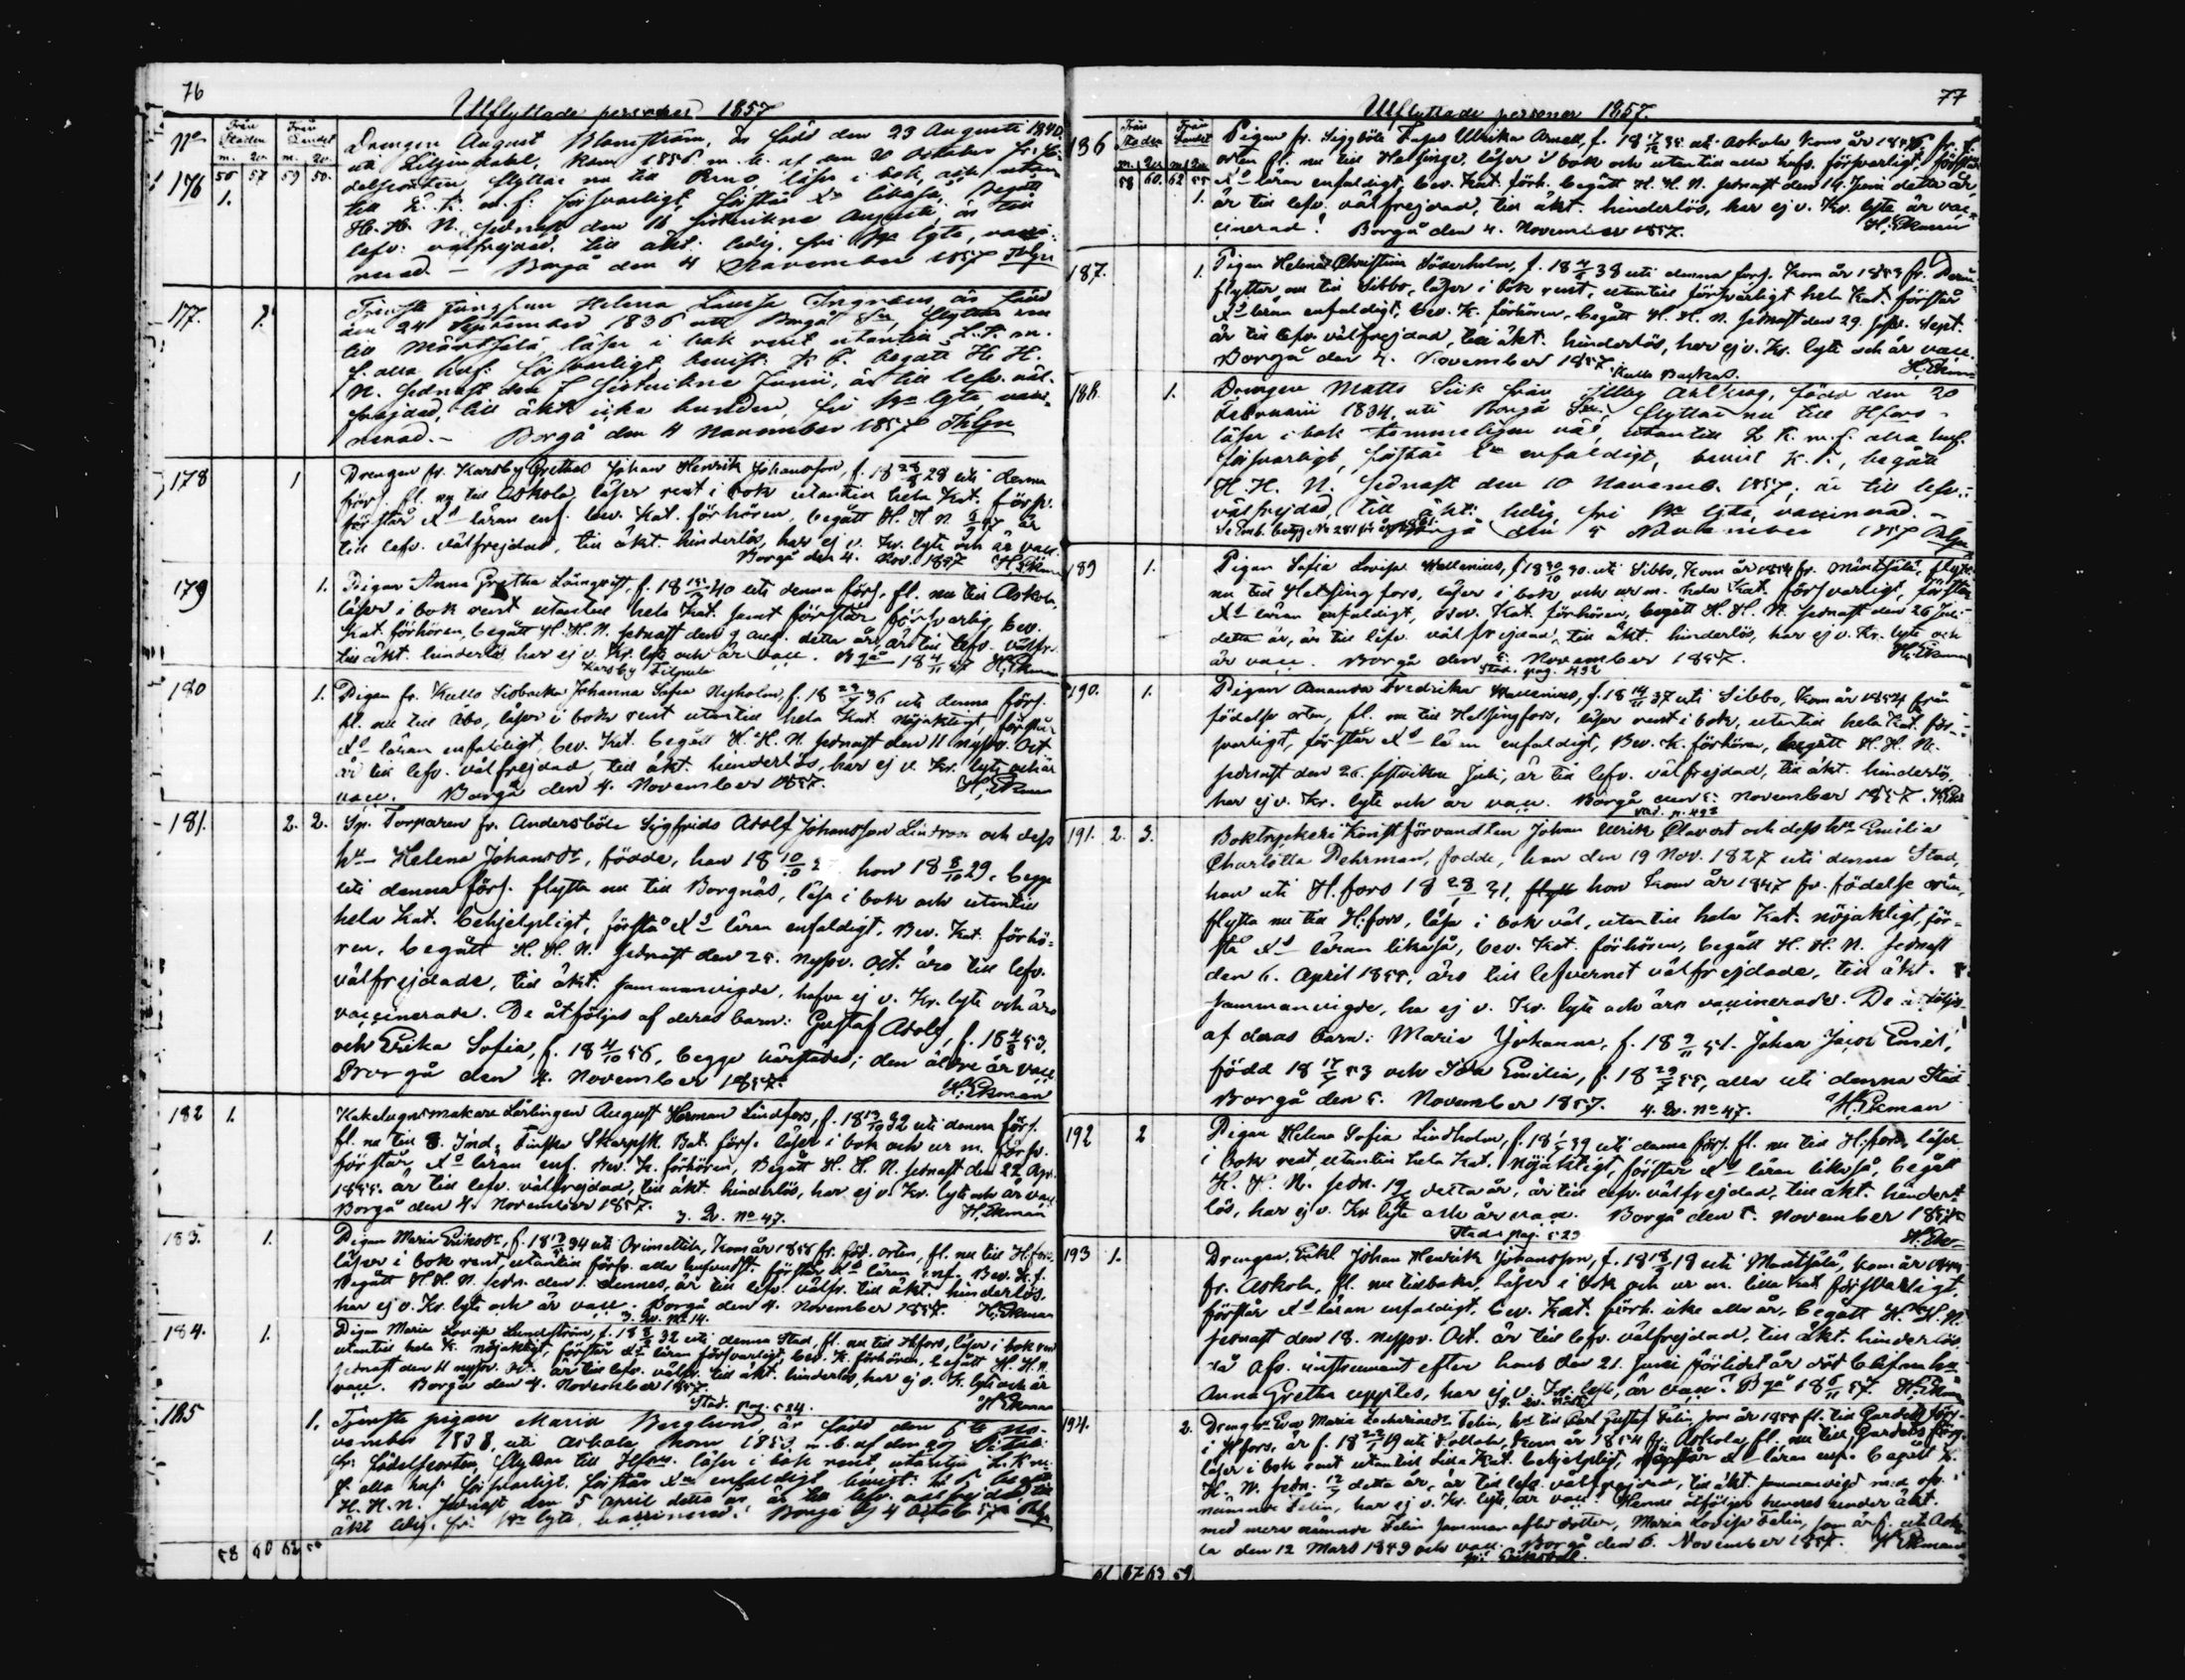 76
Utflyttade personer 1857
No
Från Staden
Från Landet
m. qv. m. qv.
56 57 59 50
176 1. Drengen August Blomström, är född den 23 Augusti 1840
uti Liljendahl, kom 1856 m. b. af den 20 October fr. fö-
delseorten, flyttar nu till Perno läser i bok, och utan
till L. K. m. f. försvarligt, förstår Xd likaså, begått
H. H. N. sednast den 16 sistvikne Augusti, är till
lefv: välfrejdad, till äkt: ledig, fri Vn lyte, vacci-
nerad. — Borgå den 4 November 1857 Thlgn
177. 1. Tjenste jungfrun Helena Lovisa Ingnäus är född
den 24 September 1836 uti Borgå Sn, flyttar nu
till Mäntsälä läser i bok rent utantill L. K. m.
f. alla huf: försvarligt, bevist: K. F. begått H. H.
N. sednast den 7 sistvikne Junii, är till lefv. väl-
frejdad, till äkt: icke bunden, fri Vn lyte vacci-
nerad. — Borgå den 4 November 1857 Thlgn
178 1 Drengen fr. Karsby Grethas Johan Henrik Johansson, f. 18 28/8 28 uti denna
förs. fl. nu till Askola, läser rent i bok utantill hela Kat. försv.
förstår Xd läran enf. bev. Kat. förhören, begått H. H. N. är
till lefv. välfrejdad, till äkt. hinderlös, har ej v. Kr. lyte och är vacc.
Borgå den 4. Nov. 1857 H. Ekman
179 1. Pigan Anna Gretha Lönnqvist, f. 40 uti denna förs. fl. nu till Askola,
läser i bok rent utantill hela Kat. samt förstår försvarlig, bev.
Kat. förhören, begått H. H. N. sednast den 9 Aug. detta år, är till lefv. välfr.
till äkt. hinderlös, har ej v. Kr. lyte och är vacc. Bgå 18 4/11 57 H. Ekman
Karsby Filpula
180 1. Pigan fr. Kullo Johanna Sofia Nyholm, f. 36 uti denna förs.
fl. nu till Åbo, läser i bok rent utantill hela Kat. nöjaktigt, förstår
Xd läran enfaldigt, bev. Kat. begått H. H. N. sednast den 11 nyssv. Oct.
är till lefv. välfrejdad, till äkt. hinderlös, har ej v. Kr. lyte och är
vacc. Borgå den 4. November 1857. H. Ekman
181. 2. 2. Sp. Torparen fr. Andersböle Sigfrids Adolf Johansson Lindroos och dess
hu Helena Johansdr, födde, han 18 10/10 hon 18 8/10 29, begge
uti denna förs. flytta nu till Borgnäs, läsa i bok och utantill
hela Kat. behjelpligt, förstå Xd läran enfaldigt, Bev. Kat. förhö-
ren, begått H. H. N. sednast den 25. nyssv. Oct. äro till lefv.
välfrejdade, till äkt. sammanvigde, hafva ej v. Kr. lyte och äro
vaccinerade. De åtföljas af deras barn: Gustaf Adolf, f. 18 4/8 53,
och Erika Sofia, f. 18 4/10 56, begge härstädes; den äldre är vacc.
Borgå den 4. November 1857. H. Ekman
182 1. Kakelugnsmakare Lärlingen August Herman Lindfors, f. 32 uti denna förs.
fl. nu till 8. Ind. Finska Skarpsk. Bat. förs. läser i bok och ur m. försv.
förstår Xd läran enf. Bev. K. förhören, Begått H. H. N. sednast den 22 Apr.
1855. är till lefv. välfrejdad, till äkt. hinderlös, har ej v. Kr. lyte och är vacc.
Borgå den 4. November 1857. H. Ekman
3. Qv. No 47.
183. 1. Pigan Maria Eriksdr, f. 34 uti Orimattila, kom år fr. föd. orten, fl. nu till H:fors.
läser i bok rent, utantill försv. alla hufvudst. förstår Xd läran enf. Bev. K. f.
Begått H. H. N. sedn. den 1. dennes, är till lefv. välfr. till äkt. hinderlös.
har ej v. Kr. lyte och är vacc. Borgå den 4. November 1857. H. Ekman
3. Qv. No 14.
184. 1. Pigan Maria Lovisa Lundström, f. 32 uti denna Stad, fl. nu till Hfors, läser i bok rent
utantill hela K. nöjaktigt, förstår Xd läran försvarligt, bev. K. förhören, begått H. H. N.
sednast den 4 nyssv. Oct. är till lefv. välfr. till äkt. hinderlös, har ej v. K. lyte och är
vacc. Borgå den 4. November 1857. H. Ekman
Stad. pag. 524.
185 1. Tjenste pigan Maria Berglund, är född den 6te No-
vember 1838, uti Askola, kom 1853 m. b. af den
fr. födelseorten, flyttar till Hfors. läser i bok rent, utantill L. K. m.
f. alla huf. försvarligt, förstår Xdn enfaldigt, bevist. K. F. begått
H. H. N. sednast den 5 April detta år, är till lefv. välfrejdad, till
äkt ledig, fri Vn lyte, vaccinerad. Borgå
58 60 62 50

77
Utflyttade personer 1857.
Från Staden
Från Landet
m. qv. m. qv.
58 60. 62
186 1. Pigan fr. Siggböle Ulrika Arnell, f. uti Askola, kom år fr. f.
orten fl. nu till Helsinge, läser i bok och utantill alla hufv. försvarligt, förstår
Xd läran enfaldigt, bev. Kat. förh. begått H. H. N. sednast den 14. Juni detta år,
är till lefv. välfrejdad, till äkt. hinderlös, har ej v. Kr. lyte är vac-
cinerad. Borgå den 4. November 1857. H. Ekman
187. 1. Pigan Helena Christina Söderholm, f. 38 uti denna förs. kom år 1853 fr.
flyttar nu till Sibbo, läser i bok rent, utantill försvarligt hela Kat. förstår
Xd läran enfaldigt, bev. K. förhören, begått H. H. N. sednast den 29. Sept.
är till lefv. välfrejdad, till äkt. hinderlös, har ej v. Kr. lyte och är vacc.
Borgå den 4. November 1857. H. Ekman
Kullo Backas.
188. 1. Drengen Matts Siik från född den 20
Februarii 1834, uti Borgå Sn, flyttar nu till Hfors
läser i bok temmeligen väl, utantill L. K. m. f. alla huf.
försvarligt, förstår enfaldigt, bevist K. F., begått
H. H. N. sednast den 10 1857, är till lefv.
välfrejdad, till äkt: ledig fri Vn lyte, vaccinerad. —
Borgå den 5 November 1857 Thlgn
189 1. Pigan Sofia Lovisa Wallenius, f. 18 30/10 30 uti Sibbo, kom år 1854 fr. Mäntsälä, flytt.
nu till Helsingfors, läser i bok och ur m. hela Kat. försvarligt, förstår
Xd läran enfaldigt, Bev. Kat. förhören, begått H. H. N. sednast den 26 Juli
detta år, är till lefv. välfrejdad, till äkt. hinderlös, har ej v. Kr. lyte och
är vacc. Borgå den 5. November 1857. H. Ekman
Stad. pag. 492
190. 1. Pigan Amanda Fredrika Wallenius, f. 18 14/11 37 uti Sibbo, kom år 1854 från
födelse orten, fl. nu till Helsingfors, läser rent i bok, utantill hela Kat. för-
svarligt, förstår Xd läran enfaldigt, Bev. K. förhören, begått H. H. N.
sednast den 26. sistvikne Juli, är till lefv. välfrejdad, till äkt. hinderlös,
har ej v. Kr. lyte och är vacc. Borgå den 5. November 1857.
Stad. p. 492
191. 2. 3. Boktryckeri Konstförvandten Johan Ulrik Öfwert och dess hu Emilia
Charlotta Dehrman, födde, han den 19 Nov. 1827 uti denna Stad,
hon uti H.fors 18 28/1 31, hon kom år 1847 fr. födelse orten,
flytta nu till H.fors, läsa i bok väl, utantill hela Kat. nöjaktigt, för-
stå Xd läran likaså, bev. Kat. förhören, begått H. H. N. sednast
den 6. April 1855, äro till lefvernet välfrejdade, till äkt.
sammanvigde, ha ej v. Kr. lyte och äro vaccinerade. De åtföljas
af deras barn: Maria Johanna, f. 18 9/11 51. Johan Jacob Emil,
född 53 och Ida Emilia, f. 55, alla uti denna Stad
Borgå den 5. November 1857. H. Ekman
4. Qv. No 47.
192 2 Pigan Helena Sofia Lindholm, f. 39 uti denna förs. fl. nu till H:fors, läser
i bok rent, utantill hela Kat. nöjaktigt, förstår Xd läran likaså, begått
H. H. N. sedn. detta år, är till lefv. välfrejdad, till äkt. hinder-
lös, har ej v. Kr lyte och är vacc. Borgå den 5. November 1857
Stad. pag. 529
193 1. Drengen, Enkl. Johan Henrik Johansson, f. 18 18/9 18 uti Mäntsälä, kom år
fr. Askola, fl. nu tillbaka, läser i bok och ur m. lilla Kat. försvarligt,
förstår Xd läran enfaldigt, bev. Kat. förh. icke alla år, begått H. H. N.
sednast den 18. nyssv. Oct. är till lefv. välfrejdad, till äkt. hinderlös
då afv. instrument efter hans den 21. Juni förlidet år död blifna hu
Anna Gretha upptes, har ej v. Kr. lyte, är vacc. Bgå 18 6/11 57. H. Ekman
194. 2. Dreng hu Eva Maria Felin, hu till Carl Gustaf Felin, som år 1855 fl. till Gardets förs.
i Hfors, är f. 19 uti kom år 1854 fr. Askola, fl. nu till Gardets förs.
läser i bok rent utantill lilla Kat. behjelpligt, förstår Xd läran enf. begått H.
H. N. sedn. detta år, är till lefv. välfrejdad, till äkt. sammanvigd med ofv.
nämnde Felin, har ej v. Kr. lyte, är vacc. Henne åtföljer hennes under äkt.
med mera nämnde Felin sammanaflad dotter, Maria Lovisa Felin, som är f. uti Asko-
la den 12 Mars 1849 och vacc. Borgå den 6. November 1857. H. Ekman
61 67 63 59